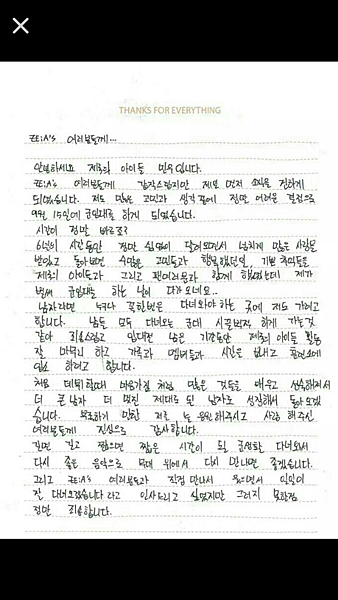 THANKS FOR EVERYTHING
ZE:A's 여러분들께...
안녕하세요 제국의 아이들 민우입니다.
ZE:A's 여러분들께 갑작스럽지만 제가 먼저 소식을 전하게
되었습니다. 저도 많은 고민과 생각 끝에 정말 어려운 결정으로
9월 15일에 군입대를 하게 되었습니다.
시간이 정말 빠르죠?
6년의 시간동안 정말 쉼없이 달려오면서 넘치게 많은 사랑을
받았고 돌아보면 수많은 고민들과 행복했던일, 기쁜 추억들을
제국의 아이들과 그리고 팬여러분과 함께 했었는데 제가
벌써 군입대를 하는 날이 다가오네요..
남자라면 누구나 꼭한번은 다녀와야 하는 곳에 저도 가려고
합니다. 남들 모두 다녀오는 군대 하게 가는것
같아 죄송스럽고 입대전 남은 기간동안 제국의 아이들 활동
잘 마무리 하고 가족과 멤버들과 시간을 보내고
입소 하려고 합니다.
처음 데뷔할때 마음가짐 처럼 많은 것들을 배우고 성숙해져서
더 큰 남자 더 멋진 제대로 된 남자로 성장해서 돌아 오겠
습니다. 부족하기 만한 저를 늘 응원해주시고 사랑 해 주신
여러분들께 진심으로 감사합니다.
길면 길고 짧으면 짧은 시간이 될 군생활 다녀와서
다시 좋은 음악으로 무대 위에서 다시 만나면 좋겠습니다.
그리고 ZE:A's 여러분들과 직접 만나서 웃으면서 씩씩이
잘 다녀오겠습니다 라고 인사드리고 싶었지만 그러지 못하점
정말 죄송합니다.